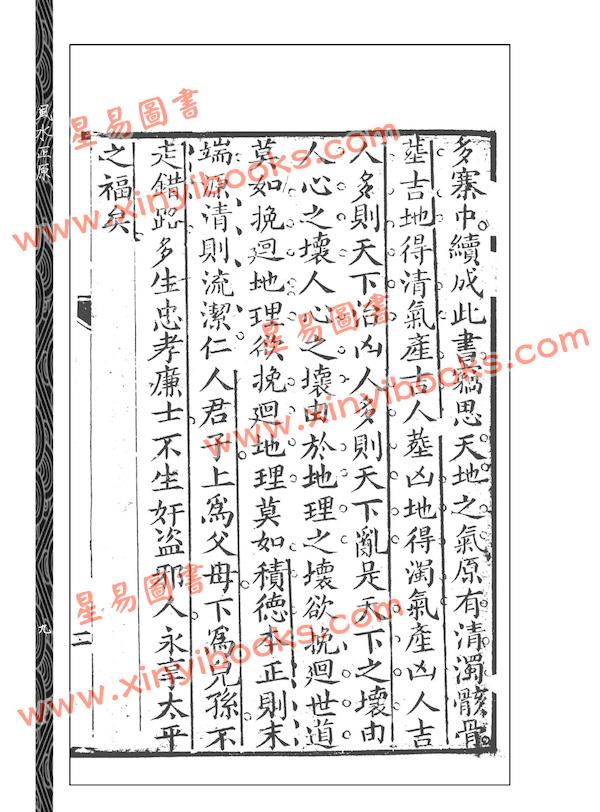 多寨中續成此書竊思天地之氣原有清濁骸骨
塟吉地得清氣產吉人塟凶地得濁氣產凶人吉
人多則天下治凶人多則天下亂是天下之壞由
人心之壞人心之壞由於地理之壞欲挽廻世道
莫如挽廻地理欲挽廻地理莫如積德本正則末
端源清則流潔仁人君子上爲父母下爲兒孫不
走錯路多生忠孝廉士不生奸盗邪人永享太平
之福矣
二
風水正原
九
星易圖書
www.xinyibooks.com
星易圖書
www.xinyibooks.com
星易圖書
www.xinyibooks.com